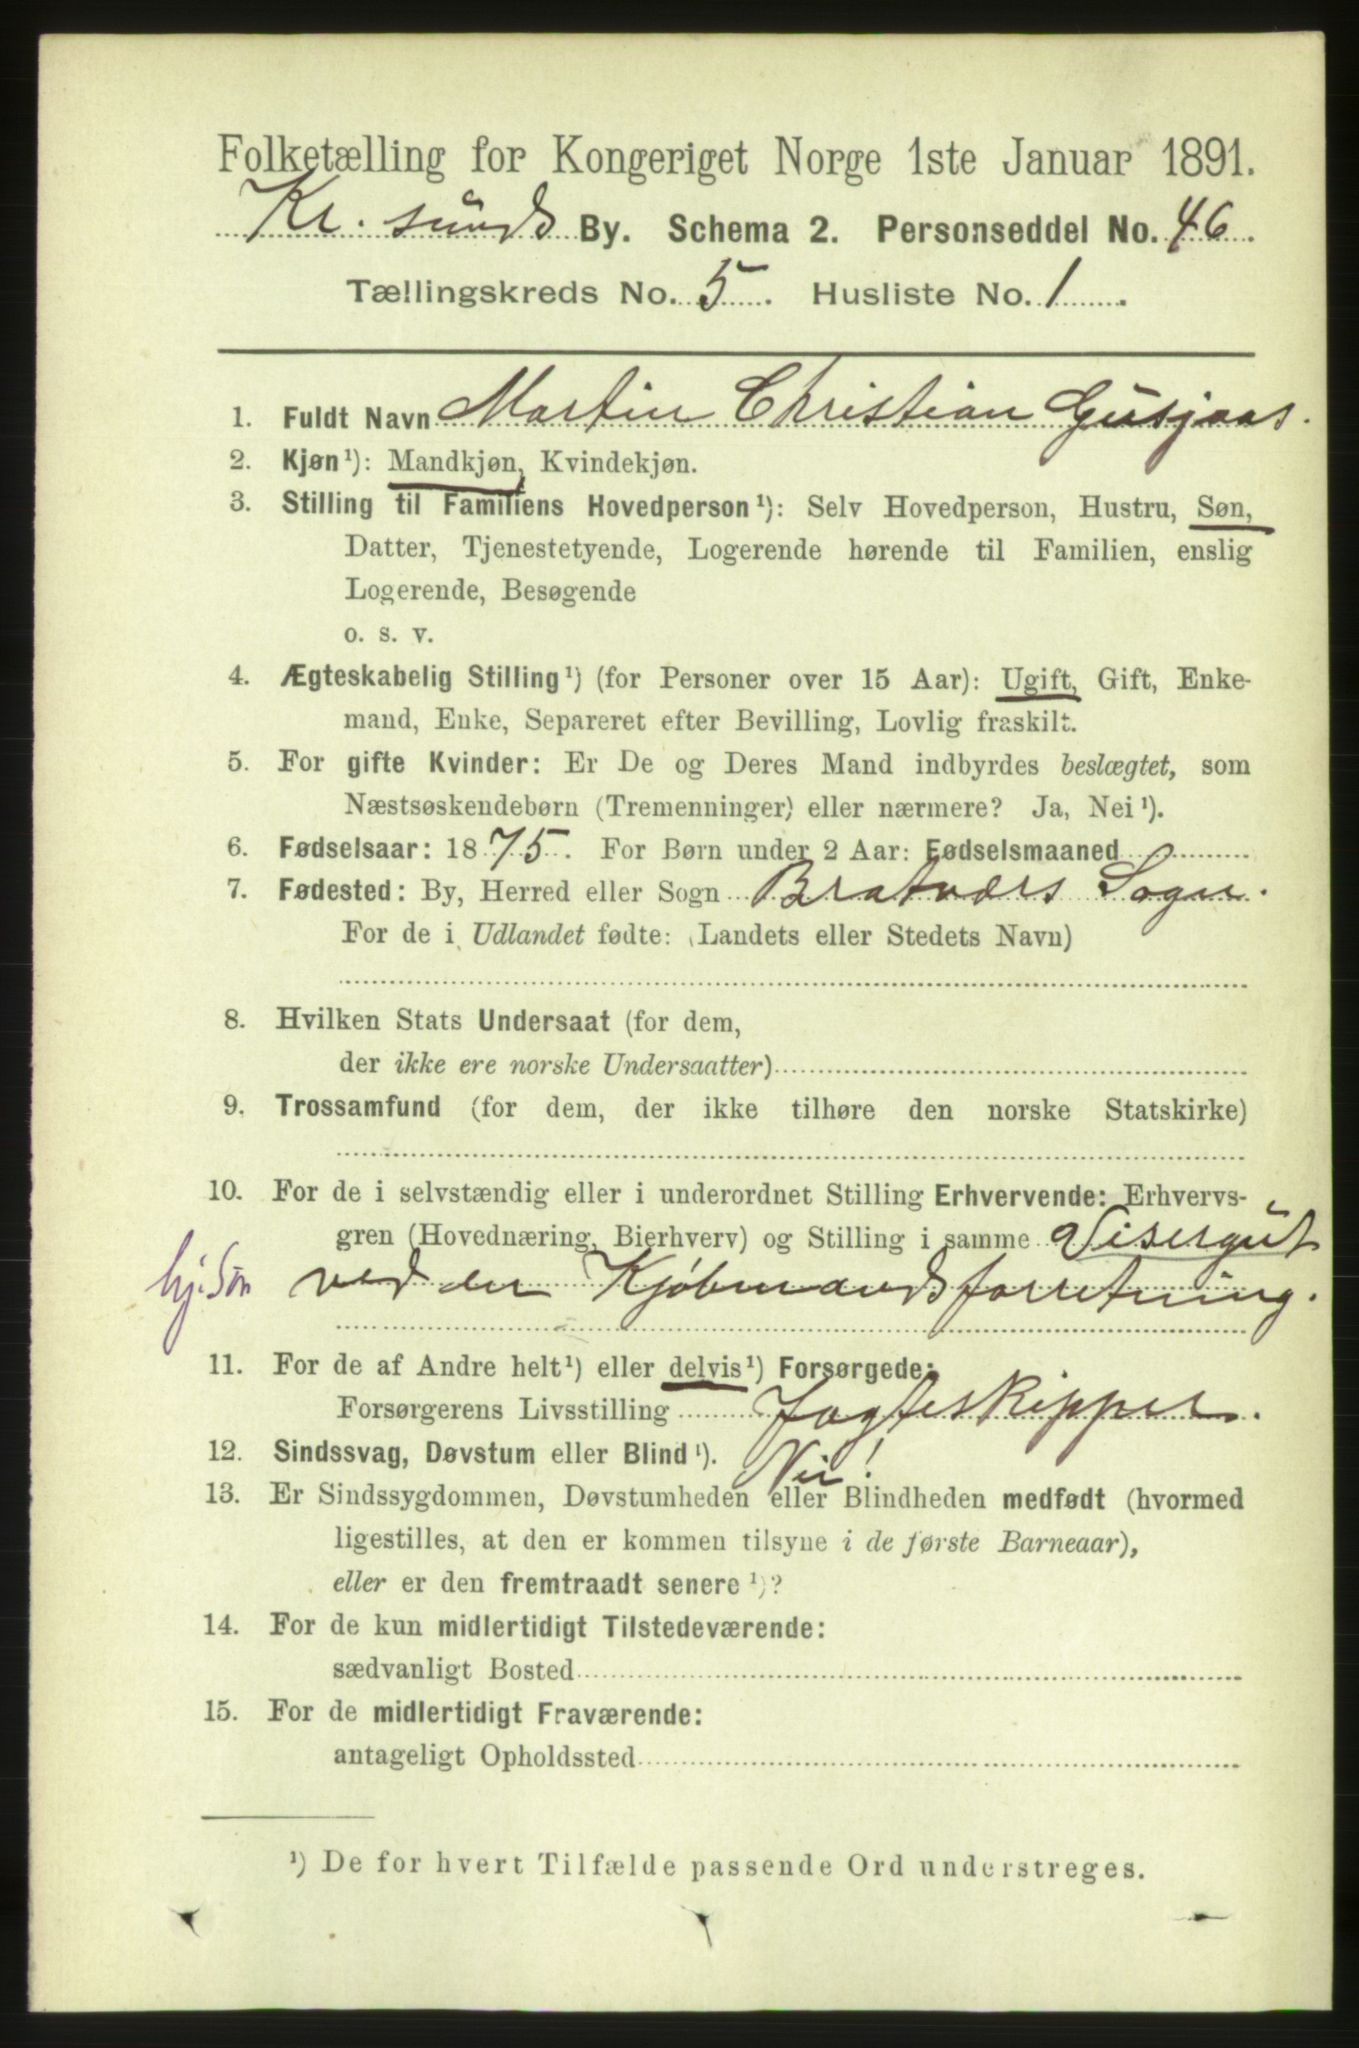 Folketælling for Kongeriget Norge 1ste Januar 1891.
Kr. sunds By. Schema 2. Personseddel No. 46.
Tællingskreds No. 5. Husliste No. 1.
1. Fuldt Navn Martin Christian Gusjaas.
2. Kjøn¹): Mandkjøn, Kvindekjøn.
3. Stilling til Familiens Hovedperson¹): Selv Hovedperson, Hustru, Søn,
Datter, Tjenestetyende, Logerende hørende til Familien, enslig
Logerende, Besøgende
o. s. v.
4. Ægteskabelig Stilling¹) (for Personer over 15 Aar): Ugift, Gift, Enke-
mand, Enke, Separeret efter Bevilling, Lovlig fraskilt.
5. For gifte Kvinder: Er De og Deres Mand indbyrdes beslægtet, som
Næstsøskendebørn (Tremenninger) eller nærmere? Ja, Nei¹).
6. Fødselsaar: 1875. For Børn under 2 Aar: Fødselsmaaned
7. Fødested: By, Herred eller Sogn Bratværs Sogn.
For de i Udlandet fødte: (Landets eller Stedets Navn)
8. Hvilken Stats Undersaat (for dem,
der ikke ere norske Undersaatter)
9. Trossamfund (for dem, der ikke tilhøre den norske Statskirke)
10. For de i selvstændig eller i underordnet Stilling Erhvervende: Erhvervs-
gren (Hovednæring, Bierhverv) og Stilling i samme Visergut
hj. Søn ved en Kjøbmandsforretning.
11. For de af Andre helt¹) eller delvis¹) Forsørgede:
Forsørgerens Livsstilling Jagteskipper.
12. Sindssvag, Døvstum eller Blind¹). Nei!
13. Er Sindssygdommen, Døvstumheden eller Blindheden medfødt (hvormed
ligestilles, at den er kommen tilsyne i de første Barneaar),
eller er den fremtraadt senere¹)?
14. For de kun midlertidigt Tilstedeværende:
sædvanligt Bosted
15. For de midlertidigt Fraværende:
antageligt Opholdssted
¹) De for hvert Tilfælde passende Ord understreges.